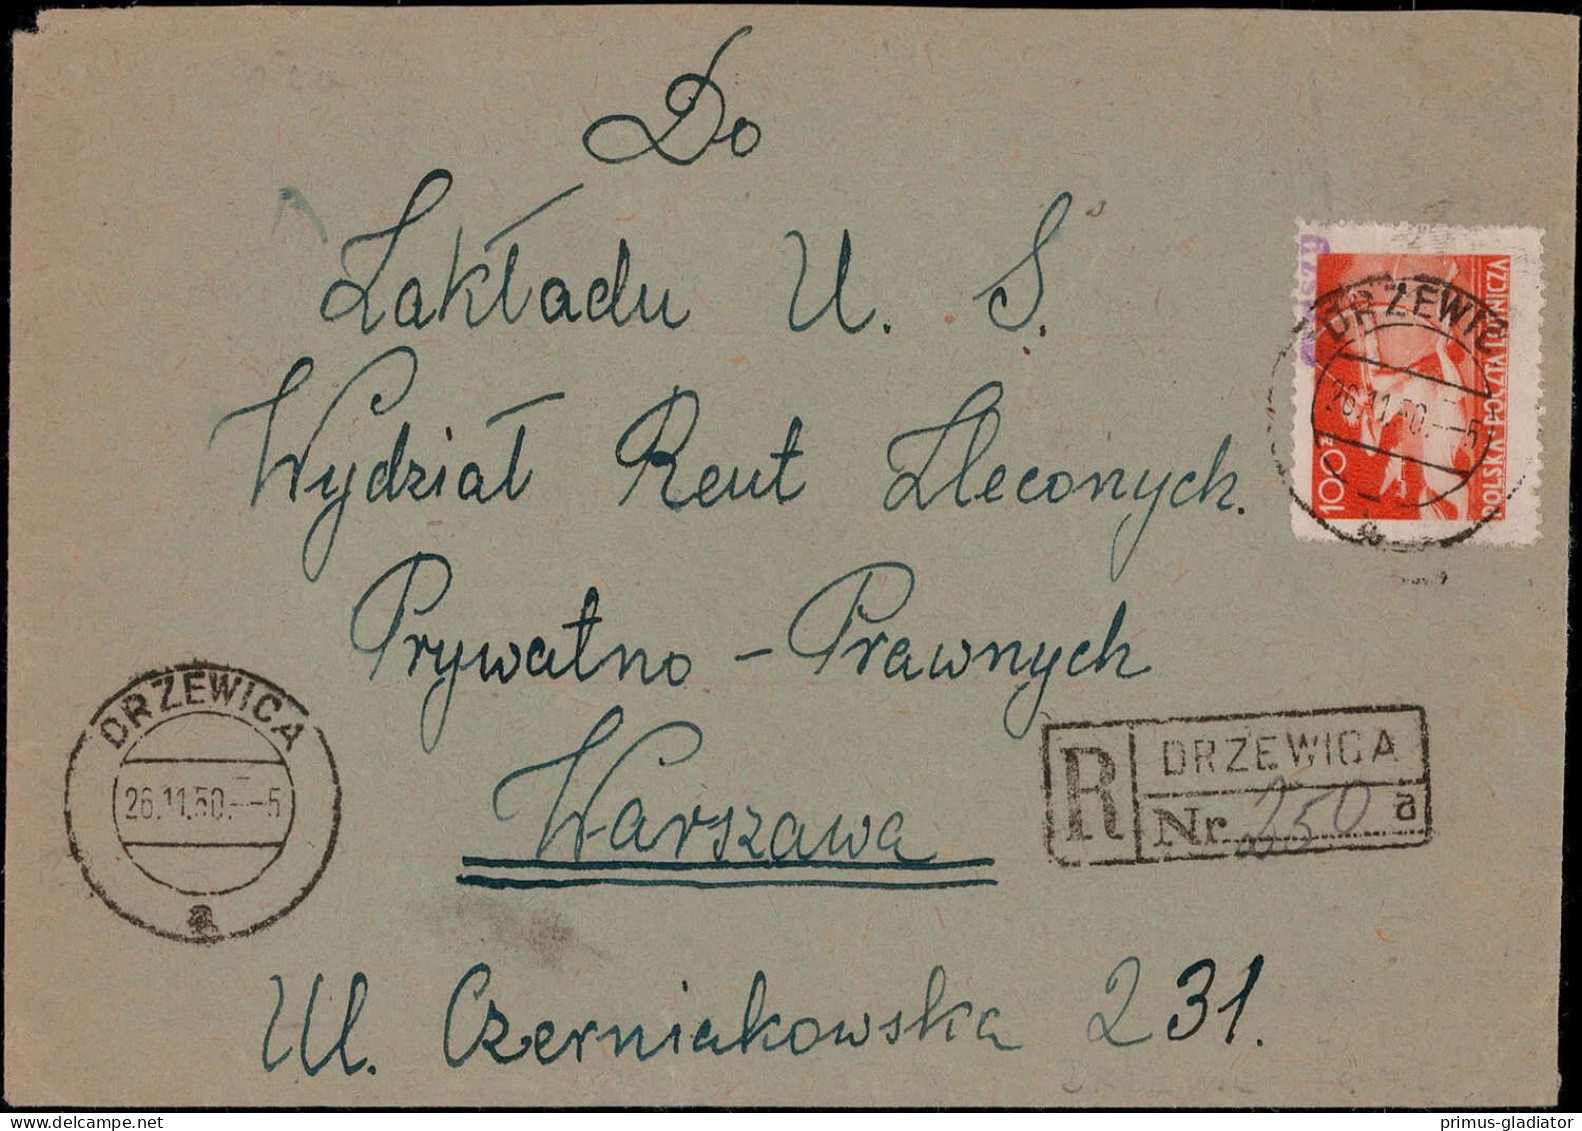 Do
Zakładu U. S.
Wydział Rent Zleconych.
Prywatno - Prawnych
Warszawa
Ul. Czerniakowska 231.
DRZEWIC
26.11.50.--5
a
100 zł
DRZEWICA
26.11.50.--5
a
R DRZEWICA
Nr 250 a
primus-gladiator